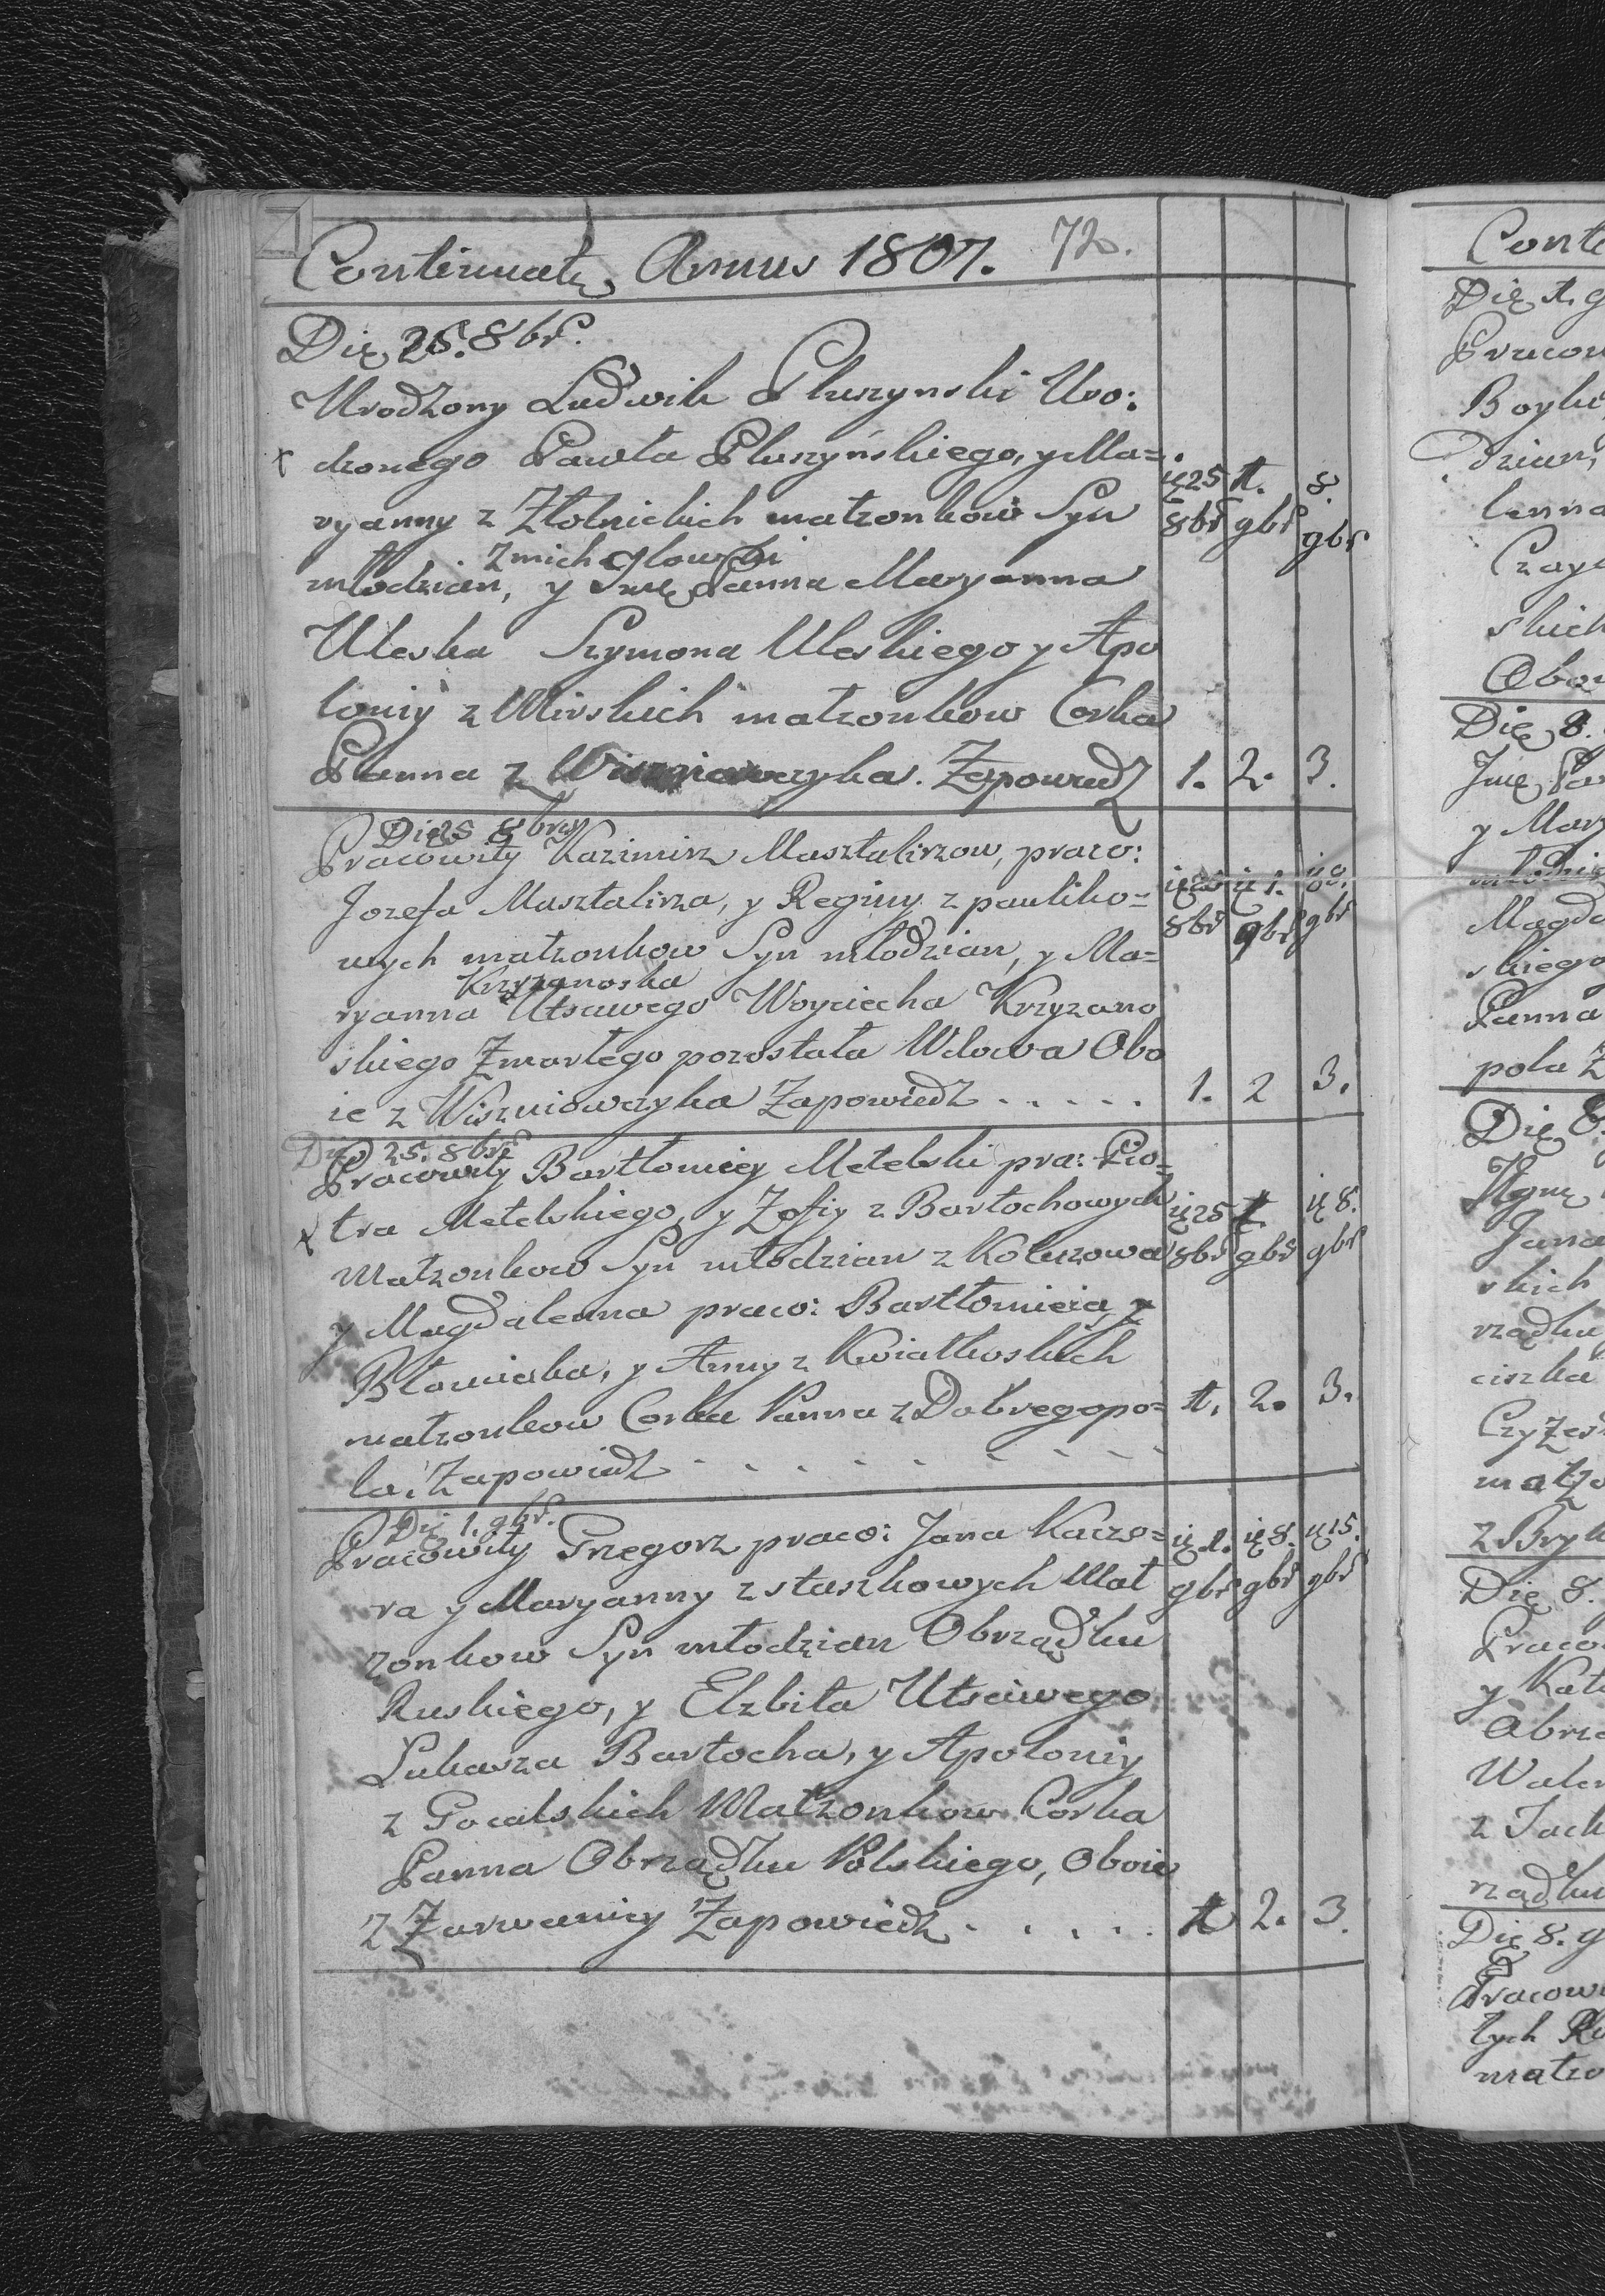 Continuatę Annus 1807. 72.
Dię 25. 8br.
Urodzony Ludwik Pluszynski Uro:
dzonego Pawła Pluszyńskiego, y Ma=
ryanny z Złotnickich małzonkow Syn
z michałowki
młodzian, y Jmę Panna Maryanna
Uleska Szymona Uleskiego y Apo
loniy z Mirskich małzonkow Corka
Panna z Wiszniowczyka. Zapowiedz 1. 2. 3.
ię 25 1. 8.
8br 9br 9br
Die 25 8bris
Pracowity Kazimirz Masztalirzow, praco:
Jozefa Masztalirza, y Reginy z pauliko=
wych małzonkow Syn młodzian, y Ma=
Krzyzanoska
ryanna Utsciwego Woyciecha Krzyzano
skiego Zmarłego pozostała Wdowa Obo
ie z Wiszniowczyka Zapowiedz . . . . . 1. 2 3.
ię 25 ię 1. ię 8.
8br 9br 9br
Die 25. 8br
Pracowity Bartłomiey Metelski pra: Pio=
tra Metelskiego, y Zofiy z Bartochowych
Małzonkow Syn młodzian z Kotuzowa
y Magdalenna praco: Bartłomieia y
Błoniaka, y Anny z Kwiatkoskich
małzonkow Corka Panna z Dobregopo= 1. 2. 3.
la: Zapowiedz . . . . . . . .
ię 25 1. ię 8.
8br 9br 9br
Dię 1. 9br.
Pracowity Grzegorz praco: Jana Kaczo= ię 1. ię 8. ię 15.
ra y Maryanny z staszkowych Mał 9br 9br 9br
zonkow Syn młodzian Obrządku
Ruskiego, y Elzbita Utsciwego
Łukasza Bartocha, y Apoloniy
z Gocalskich Małzonkow Corka
Panna Obrządku Polskiego, Oboie
z Zarwanicy Zapowiedz . . . . . 1 2. 3.
Conte
Dię 1. 9
Pracow
Boyk
dzian,
lenna
Czay
skich
Obo
Dię 8.
Jmę Pan
y Mary
młodzia
Magda
skiego
Panna
pola Z
Dię 8.
Jana
skich
rządku
ciszka
Czyzes
małzo
z Bryk
Dię 8.
Praco
y Kata
Obrzą
Walen
z Jack
rządku
Dię 8. 9
Pracowi
łych
małzo